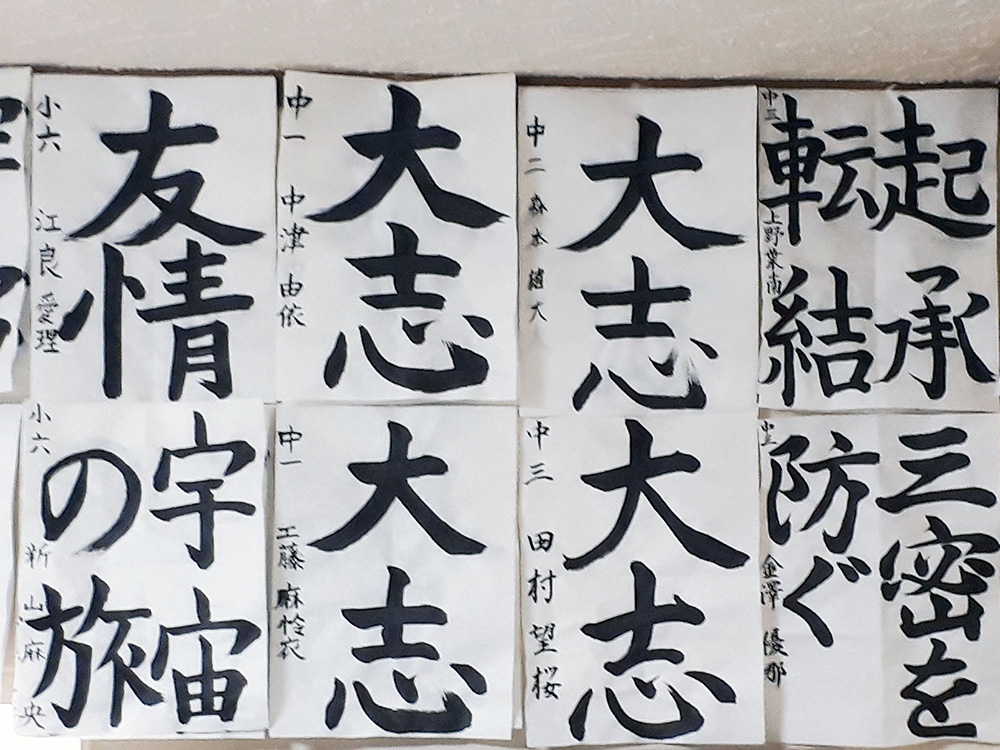 友情
小六 江良愛理
大志
中一 中津由依
大志
中二
起承
転結
中三 上野菜南
宇宙
の旅
小六 新山麻央
大志
中一 工藤麻怜衣
大志
中三 田村望桜
三密を
防ぐ
金澤優那